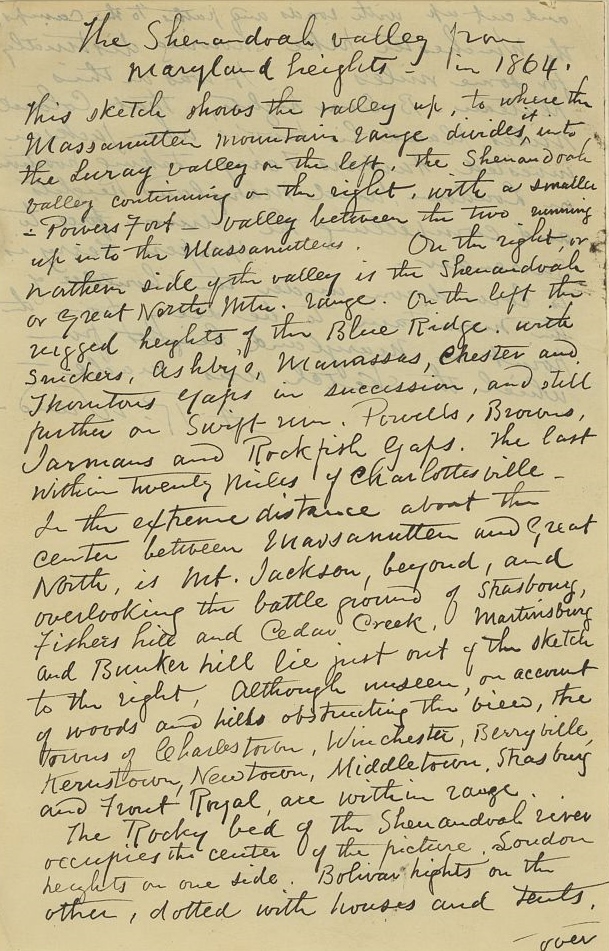 The Shenandoah valley from
Maryland heights - in 1864.
This sketch shows the valley up, to where the
Massanutten mountain range divides, it into
the Luray valley on the left, the Shenandoah
valley continuing on the right, with a smaller
- Powers Fort - valley between the two running
up into the Massanuttens. On the right, or
northern side of the valley is the Shenandoah
or Great North Mtn. range. On the left the
rugged heights of the Blue Ridge. with
Snickers, Ashby's, Manassas, Chester and
Thorntons Gaps in succession, and still
further on Swift run. Powells, Browns,
Jarmans and Rockfish Gaps. The last
within twenty miles of Charlottesville -
In the extreme distance about the
center between Massanutten and Great
North, is Mt. Jackson, beyond, and
overlooking the battle ground of Strasbourg,
Fishers hill and Cedar Creek. Martinsburg
and Bunker hill lie just out of the sketch
to the right, Although unseen, on account
of woods and hills obstructing the view, the
towns of Charlestown, Winchester, Berryville,
Kernstown, Newtown, Middletown, Strasburg
and Front Royal, are within range.
The Rocky bed of the Shenandoah river
occupies the center of the picture. Loudon
heights on one side. Bolivar hights on the
other, dotted with houses and tents.
- over